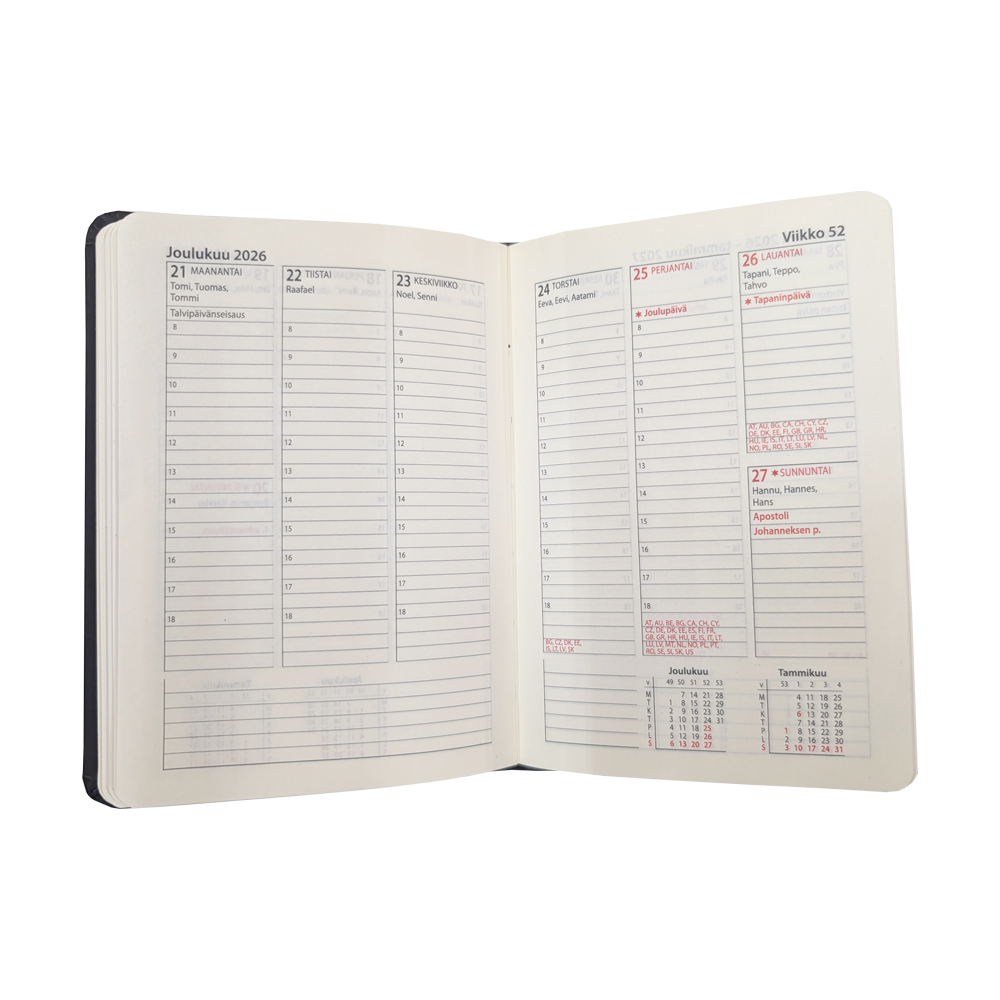 Joulukuu 2026
21 MAANANTAI
Tomi, Tuomas,
Tommi
Talvipäivänseisaus
8
9
10
11
12
13
14
15
16
17
18
22 TIISTAI
Raafael
8
9
10
11
12
13
14
15
16
17
18
23 KESKIVIIKKO
Noel, Senni
8
9
10
11
12
13
14
15
16
17
18
Viikko 52
24 TORSTAI
Eeva, Eevi, Aatami
8
9
10
11
12
13
14
15
16
17
18
BG, CZ, DK, EE,
IS, LT, LV, SK
25 PERJANTAI
✶ Joulupäivä
8
9
10
11
12
13
14
15
16
17
18
AT, AU, BE, BG, CA, CH, CY,
CZ, DE, DK, EE, ES, FI, FR,
GB, GR, HR, HU, IE, IS, IT, LT,
LU, LV, MT, NL, NO, PL, PT,
RO, SE, SI, SK, US
26 LAUANTAI
Tapani, Teppo,
Tahvo
✶ Tapaninpäivä
AT, AU, BG, CA, CH, CY, CZ,
DE, DK, EE, FI, GB, GR, HR,
HU, IE, IS, IT, LT, LU, LV, NL,
NO, PL, RO, SE, SI, SK
27 ✶ SUNNUNTAI
Hannu, Hannes,
Hans
Apostoli
Johanneksen p.
Joulukuu
v 49 50 51 52 53
M 7 14 21 28
T 1 8 15 22 29
K 2 9 16 23 30
T 3 10 17 24 31
P 4 11 18 25
L 5 12 19 26
S 6 13 20 27
Tammikuu
v. 53 1 2 3 4
M 4 11 18 25
T 5 12 19 26
K 6 13 20 27
T 7 14 21 28
P 1 8 15 22 29
L 2 9 16 23 30
S 3 10 17 24 31